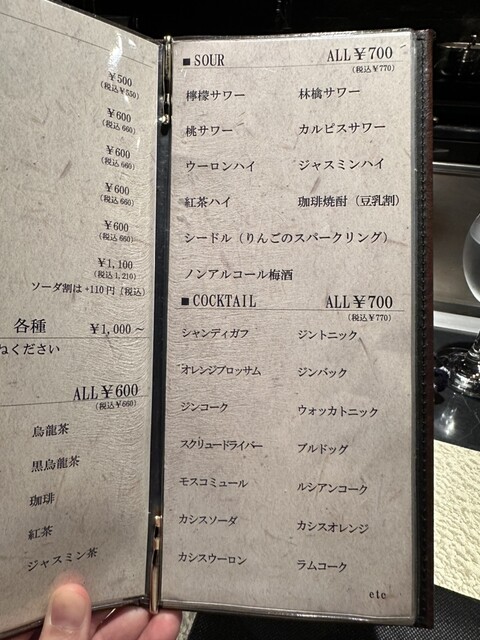 ¥500
(税込¥550)
¥600
(税込 660)
¥600
(税込 660)
¥600
(税込 660)
¥600
(税込 660)
¥1,100
(税込 1,210)
ソーダ割は +110 円 (税込)
各種 ¥1,000 ~
ねください
ALL ¥600
(税込¥660)
烏龍茶
黒烏龍茶
珈琲
紅茶
ジャスミン茶
■ SOUR ALL ¥700
(税込¥770)
檸檬サワー 林檎サワー
桃サワー カルピスサワー
ウーロンハイ ジャスミンハイ
紅茶ハイ 珈琲焼酎（豆乳割）
シードル（りんごのスパークリング）
ノンアルコール梅酒
■ COCKTAIL ALL ¥700
(税込¥770)
シャンディガフ ジントニック
オレンジブロッサム ジンバック
ジンコーク ウォッカトニック
スクリュードライバー ブルドッグ
モスコミュール ルシアンコーク
カシスソーダ カシスオレンジ
カシスウーロン ラムコーク
etc